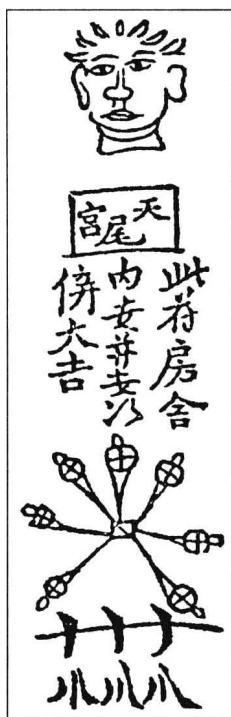 天尾宮
此符房舍
内安并安
傍大吉